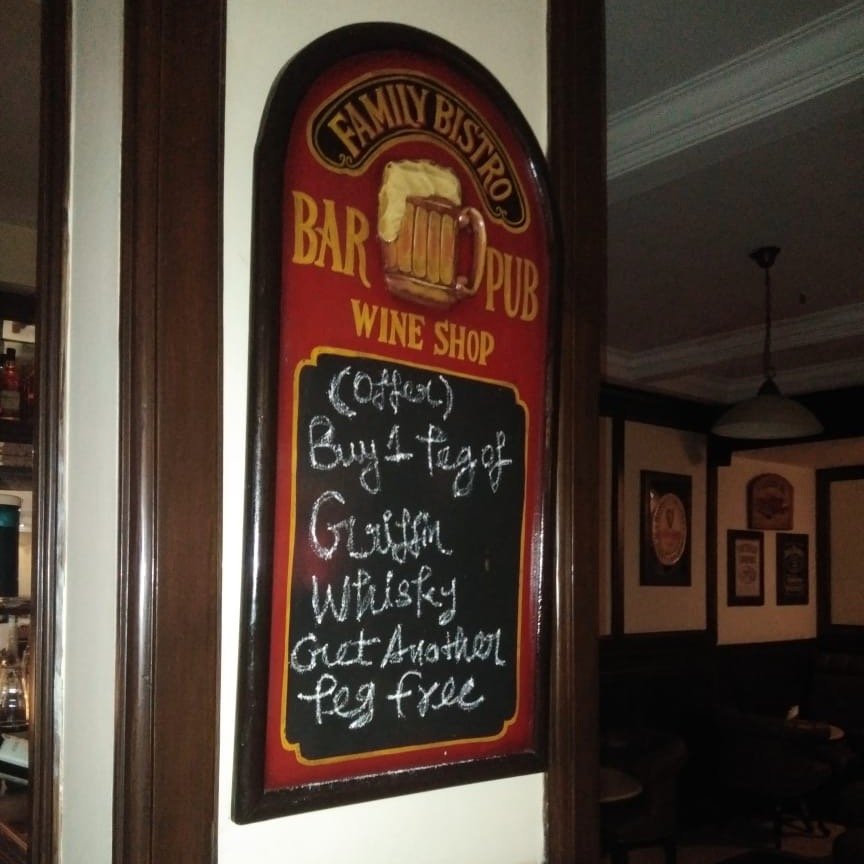 FAMILY BISTRO
BAR PUB
WINE SHOP
(Offer)
Buy 1 Peg of
Griffin
Whisky
Get Another
Peg free